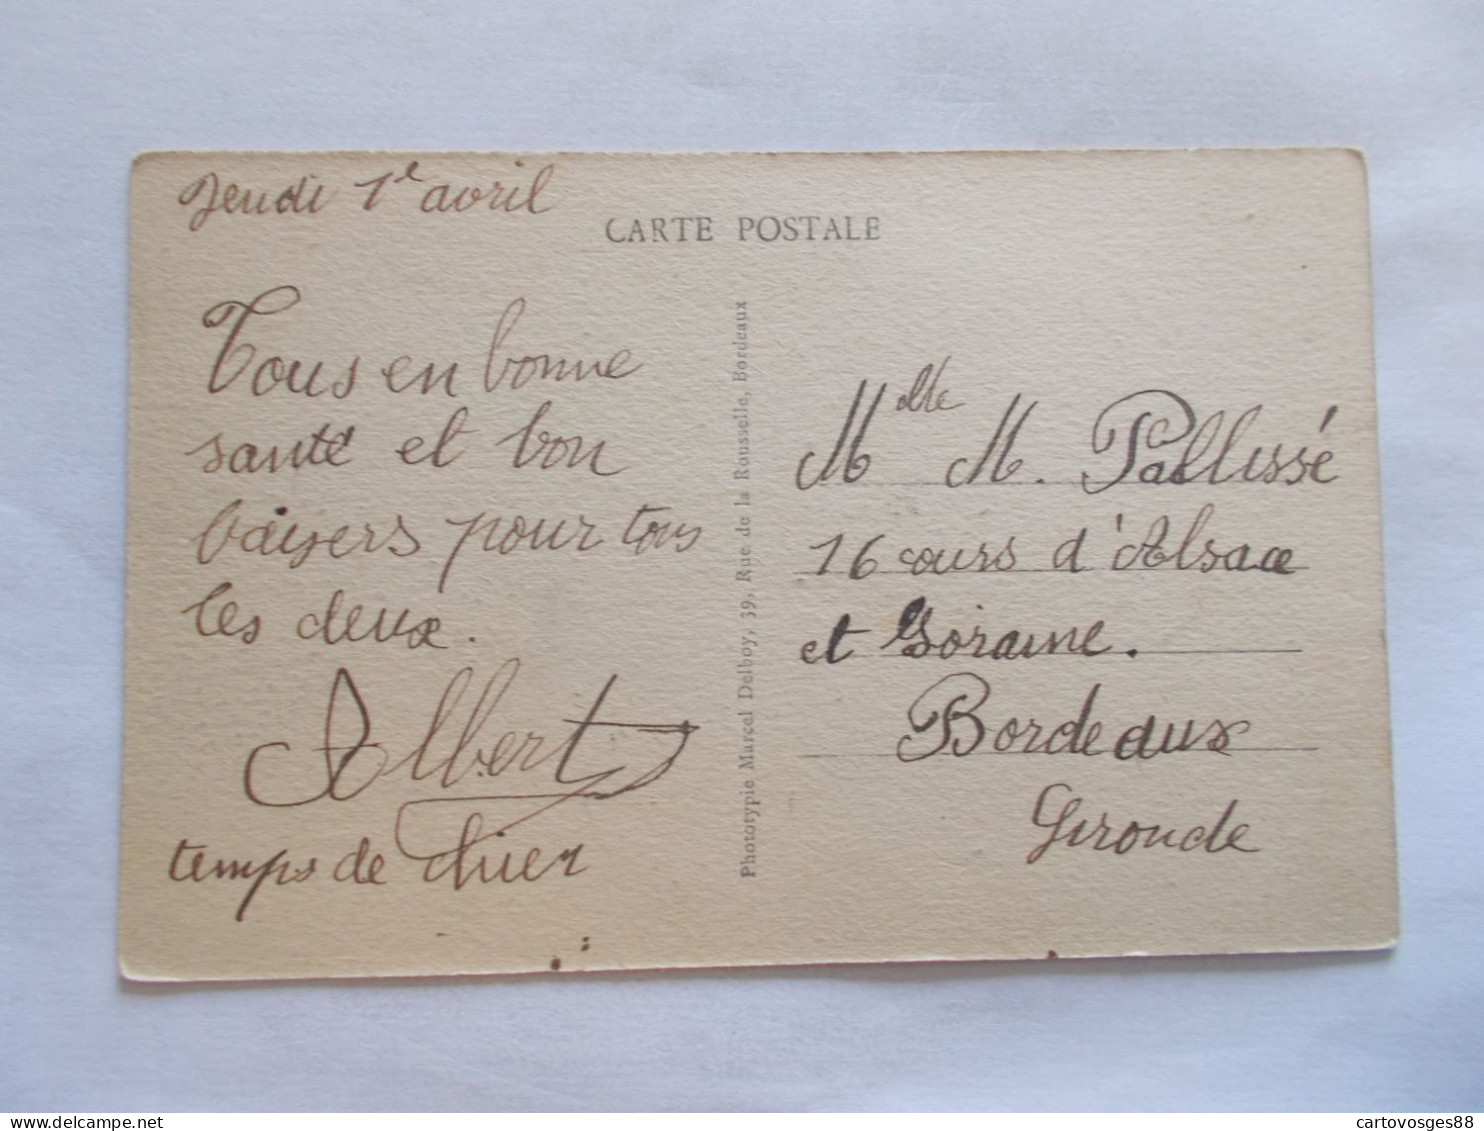 Jeudi 1e avril
CARTE POSTALE
Tous en bonne
santé et bon
baisers pour tous
les deux.
Albert
temps de chien
Phototypie Marcel Delboy, 39, Rue de la Rousselle, Bordeaux
Melle M. Pallissé
16 cours d'Alsace
et Loraine.
Bordeaux
Gironde
cartovosges88